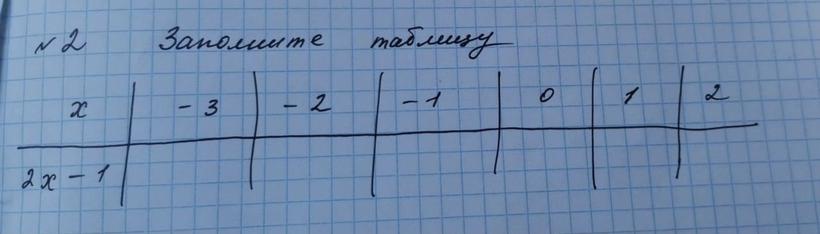 №2 Заполните таблицу
x -3 -2 -1 0 1 2
2x-1